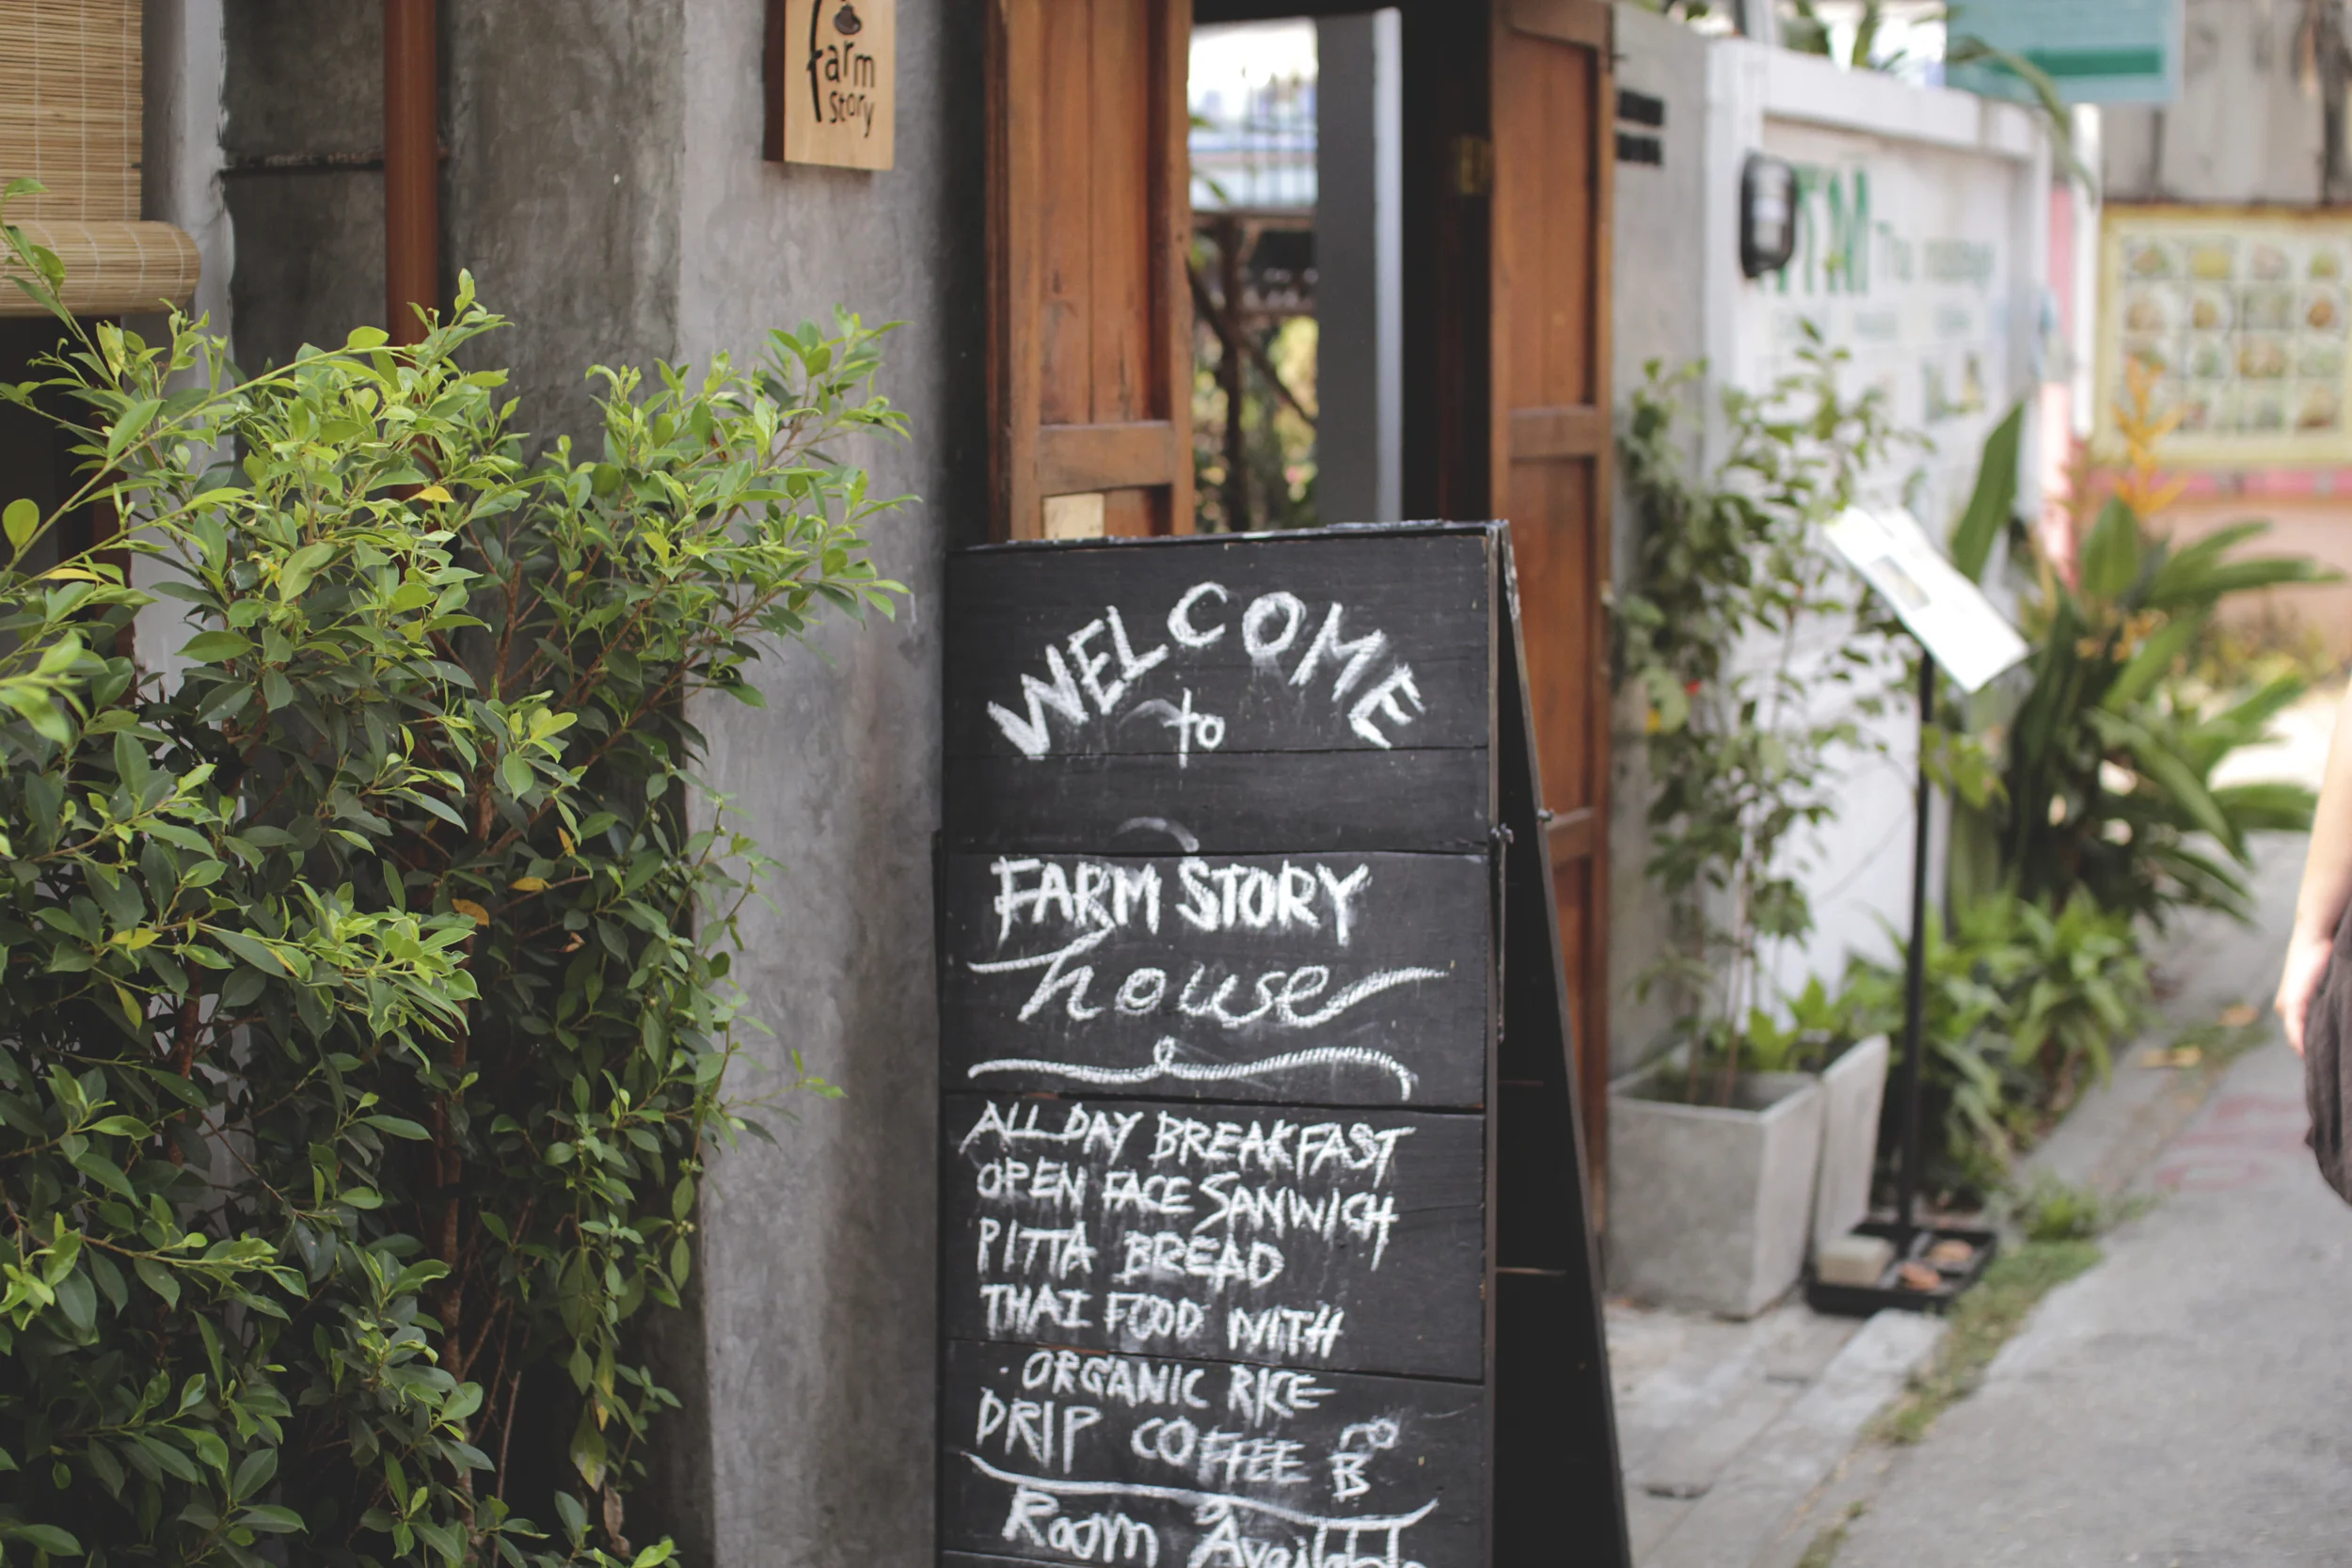 farm
story
WELCOME
to
FARM STORY
house
ALL DAY BREAKFAST
OPEN FACE SANWICH
PITTA BREAD
THAI FOOD WITH
· ORGANIC RICE
DRIP COFFEE 50 B
Room Available